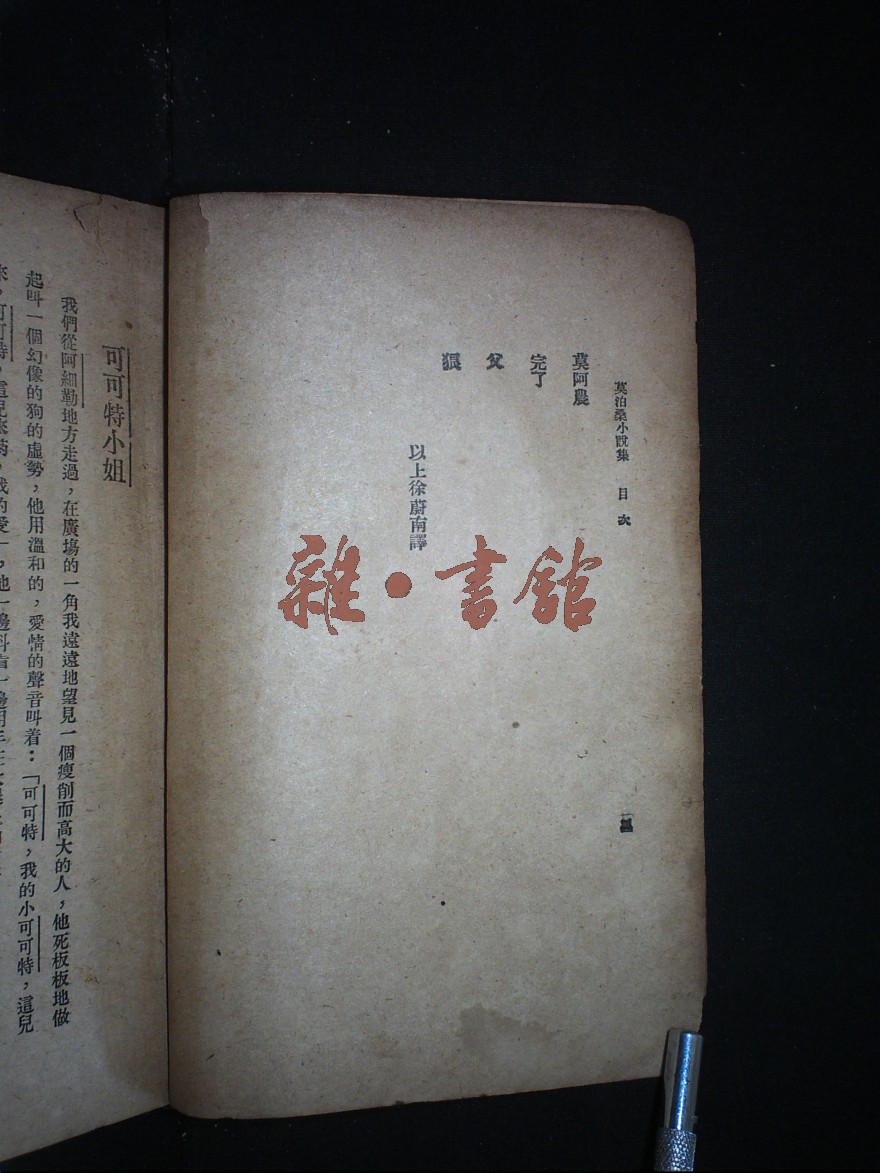 莫泊桑小說集 目次
莫阿農
完了
父
狠
以上徐蔚南譯
雜·書館
可可特小姐
我們從阿細勒地方走過，在廣場的一角我遠遠地望見一個瘦削而高大的人，他死板板地做
起叫一個幻像的狗的虛勢，他用溫和的，愛情的聲音叫着：「可可特，我的小可可特，這兒